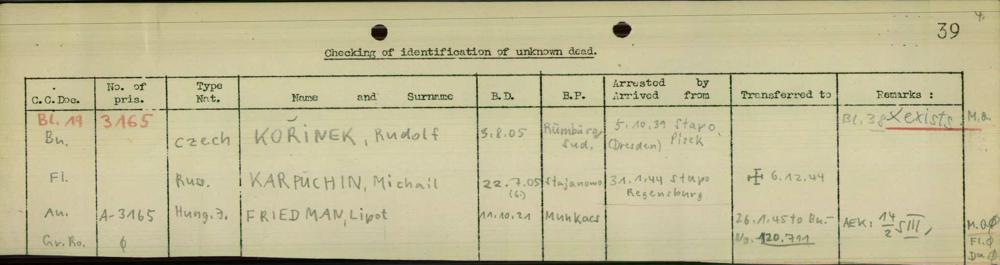 4.
39
Checking of identification of unknown dead.
C.C.Doc. No. of pris. Type Nat. Name and Surname B.D. B.P. Arrested by Arrived from Transferred to Remarks :
Bl. 19 3165 Bl. 38 exists M.D.
Bu. Czech KOŘINEK, Rudolf 3.8.05 Rümburg Sud. 5.10.39 Stapo, Pisek (Dresden)
Fl. Russ. KARPUCHIN, Michail 22.7.05 (6.) Stajanowo 31.1.44 Stapo Regensburg 6.12.44
Au. A-3165 Hung.J. FRIEDMAN, Lipot 11.10.21 Munkacs 26.1.45 to Bu.- No. 120.711 AEK: 14/2 SIII, M.D.Ø
Gr.Ro. Ø Fl.Ø
Da.Ø